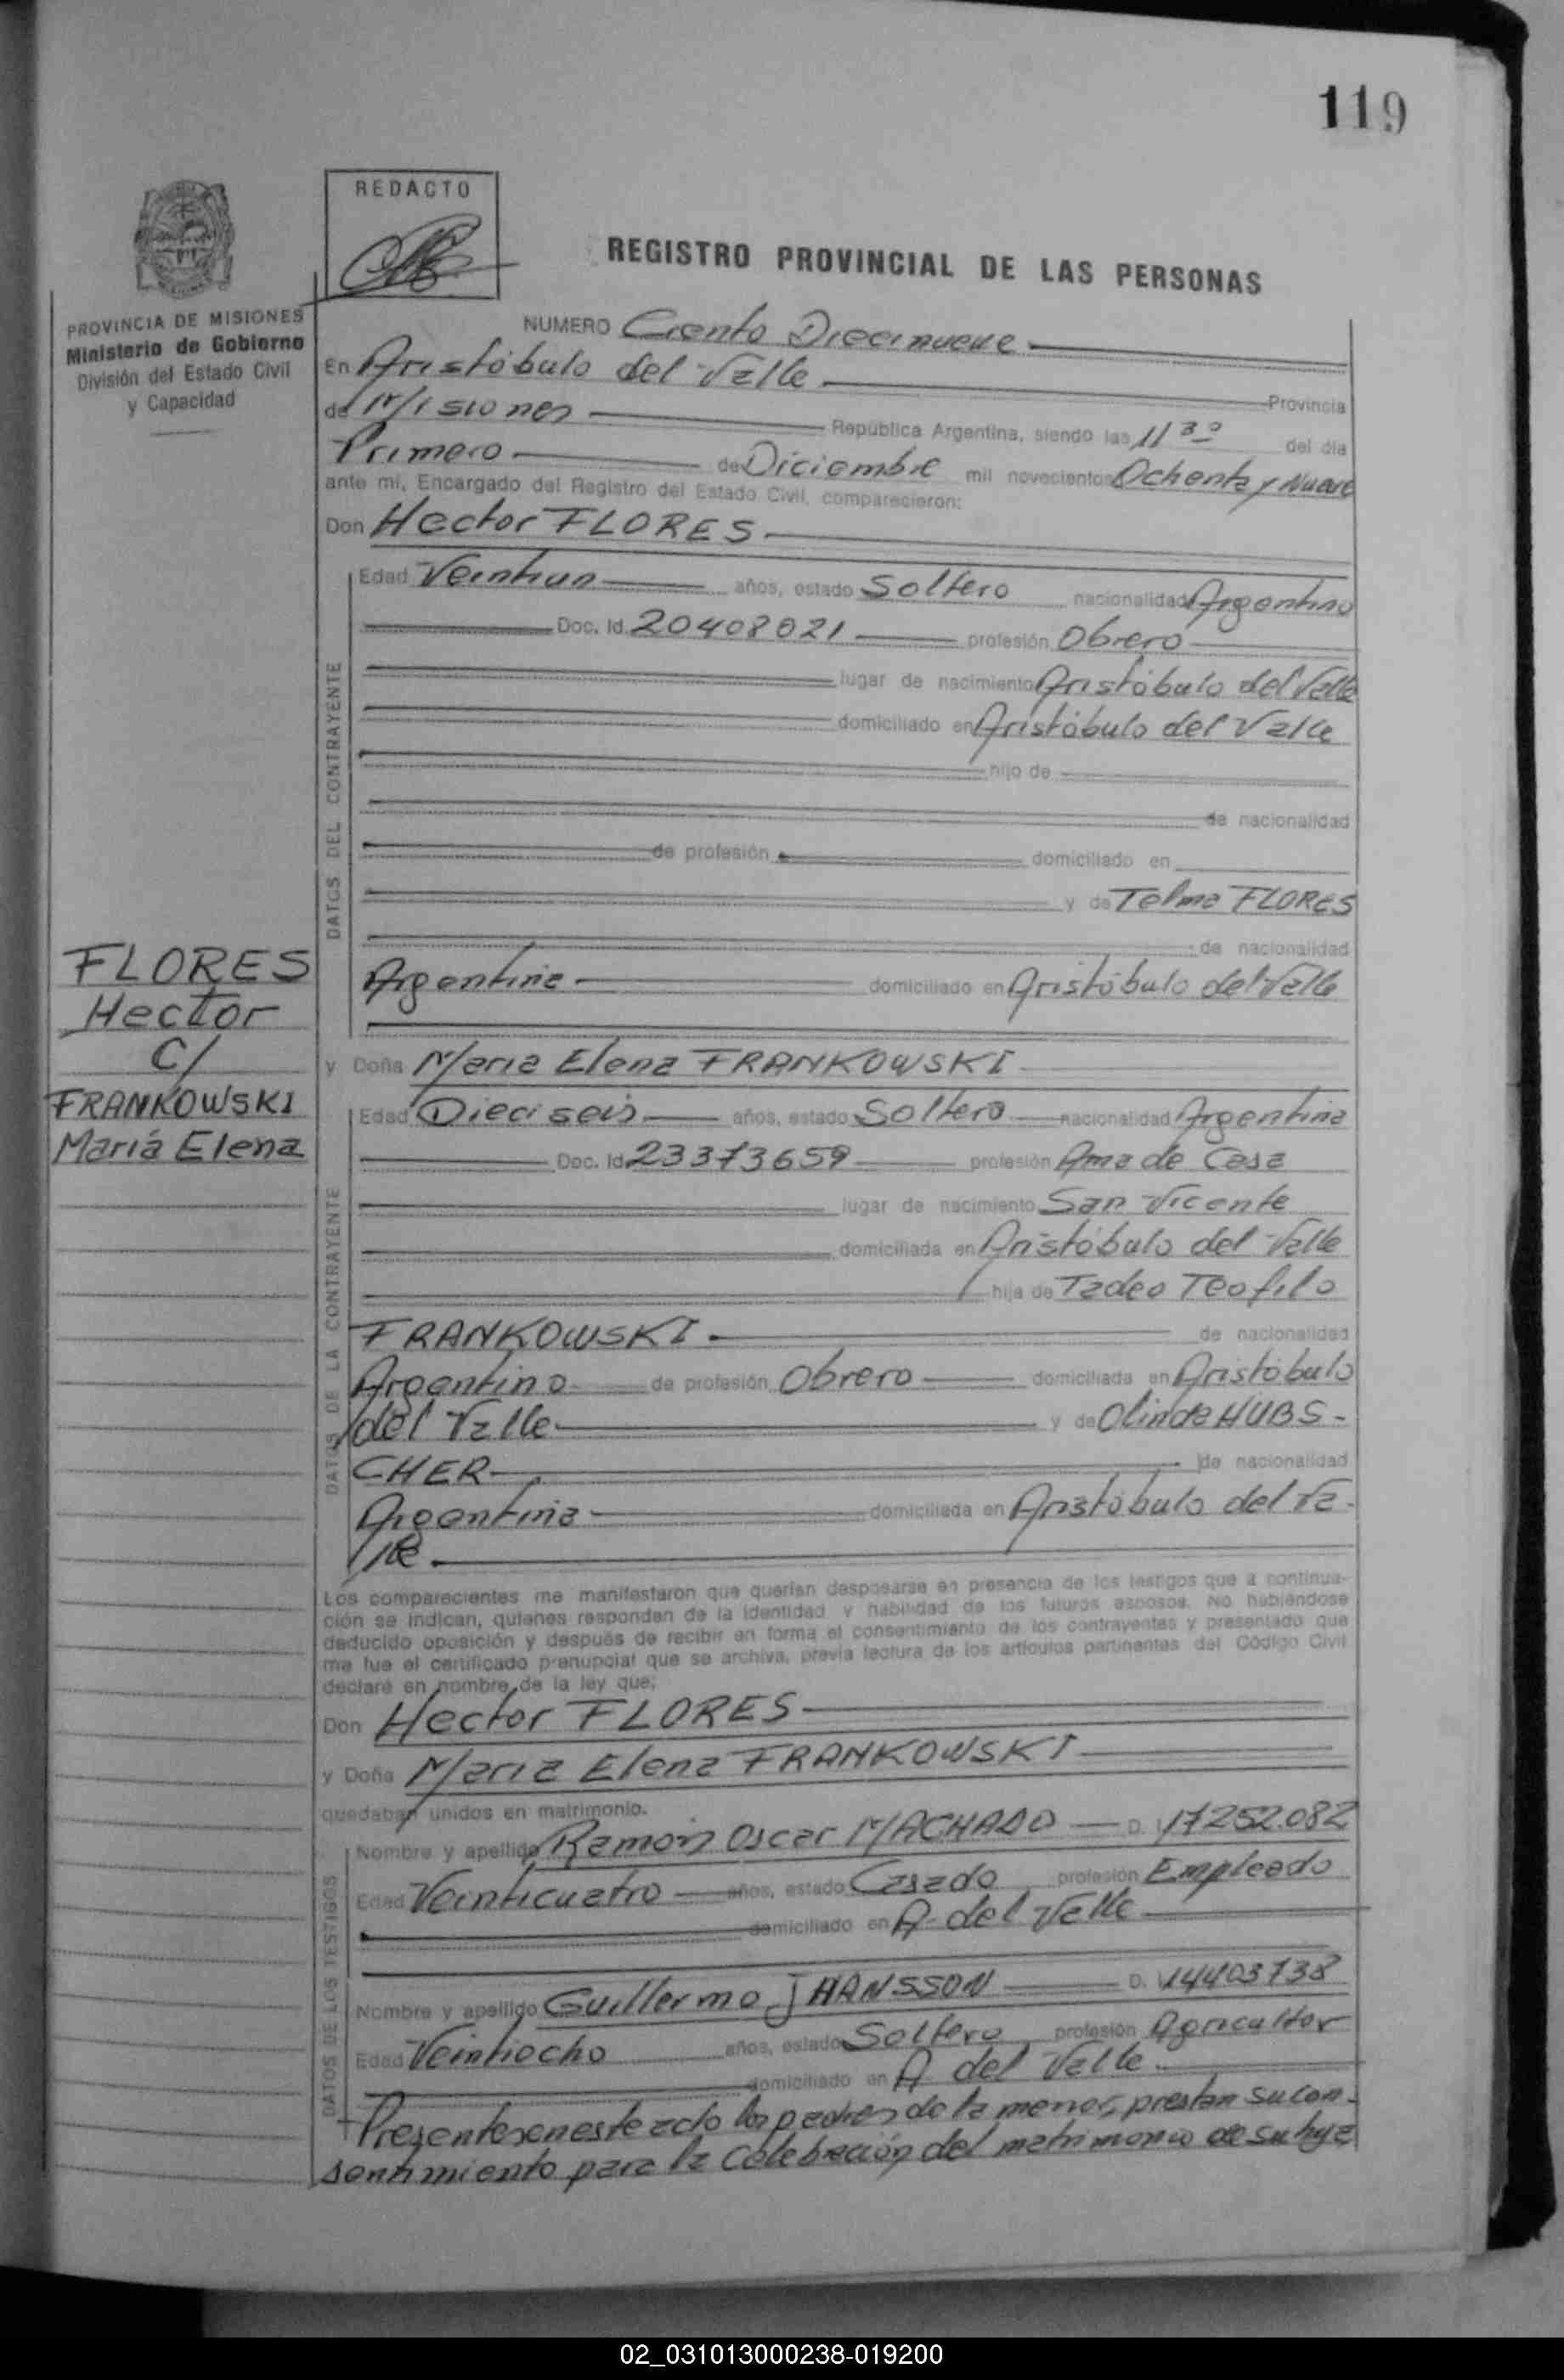 119
REDACTO
REGISTRO PROVINCIAL DE LAS PERSONAS
PROVINCIA DE MISIONES
Ministerio de Gobierno
División del Estado Civil
y Capacidad
NUMERO Ciento Diecinueve
En Aristóbulo del Valle
Provincia
de Misiones República Argentina, siendo las 11 30 del día
Primero de Diciembre mil novecientos Ochenta y Nueve
ante mí, Encargado del Registro del Estado Civil, comparecieron:
Don Hector FLORES
DATOS DEL CONTRAYENTE
Edad Veintiun años, estado Soltero nacionalidad Argentino
Doc. Id. 20408021 profesión Obrero
lugar de nacimiento Aristóbulo del Valle
domiciliado en Aristóbulo del Valle
hijo de
de nacionalidad
de profesión domiciliado en
y de Telma FLORES
de nacionalidad
Argentina domiciliado en Aristóbulo del Valle
FLORES
Hector
C/
FRANKOWSKI
Mariá Elena
y Doña Maria Elena FRANKOWSKI
DATOS DE LA CONTRAYENTE
Edad Dieciseis años, estado Soltero nacionalidad Argentina
Doc. Id. 23373659 profesión Ama de Casa
lugar de nacimiento San Vicente
domiciliada en Aristóbulo del Valle
hija de Tadeo Teofilo
FRANKOWSKI de nacionalidad
Argentino de profesión Obrero domiciliada en Aristóbulo
del Valle y de Olinda HUBS-
CHER de nacionalidad
Argentina domiciliada en Aristóbulo del Va-
lle
Los comparecientes me manifestaron que querían desposarse en presencia de los testigos que a continua-
ción se indican, quienes responden de la identidad y habilidad de los futuros esposos. No habiéndose
deducido oposición y después de recibir en forma el consentimiento de los contrayentes y presentado que
me fue el certificado prenupcial que se archiva, previa lectura de los artículos pertinentes del Código Civil
declaré en nombre de la ley que:
Don Hector FLORES
y Doña Maria Elena FRANKOWSKI
quedaban unidos en matrimonio.
DATOS DE LOS TESTIGOS
Nombre y apellido Ramón Oscar MACHADO D. I. 17252.082
Edad Veinticuatro años, estado Casado profesión Empleado
domiciliado en A. del Valle
Nombre y apellido Guillermo JHANSSON D. I. 14403738
Edad Veintiocho años, estado Soltero profesión Agricultor
domiciliado en A. del Valle
Presentes en este acto los padres de la menor, prestan su con-
sentimiento para la celebración del matrimonio de su hija
02_031013000238-019200